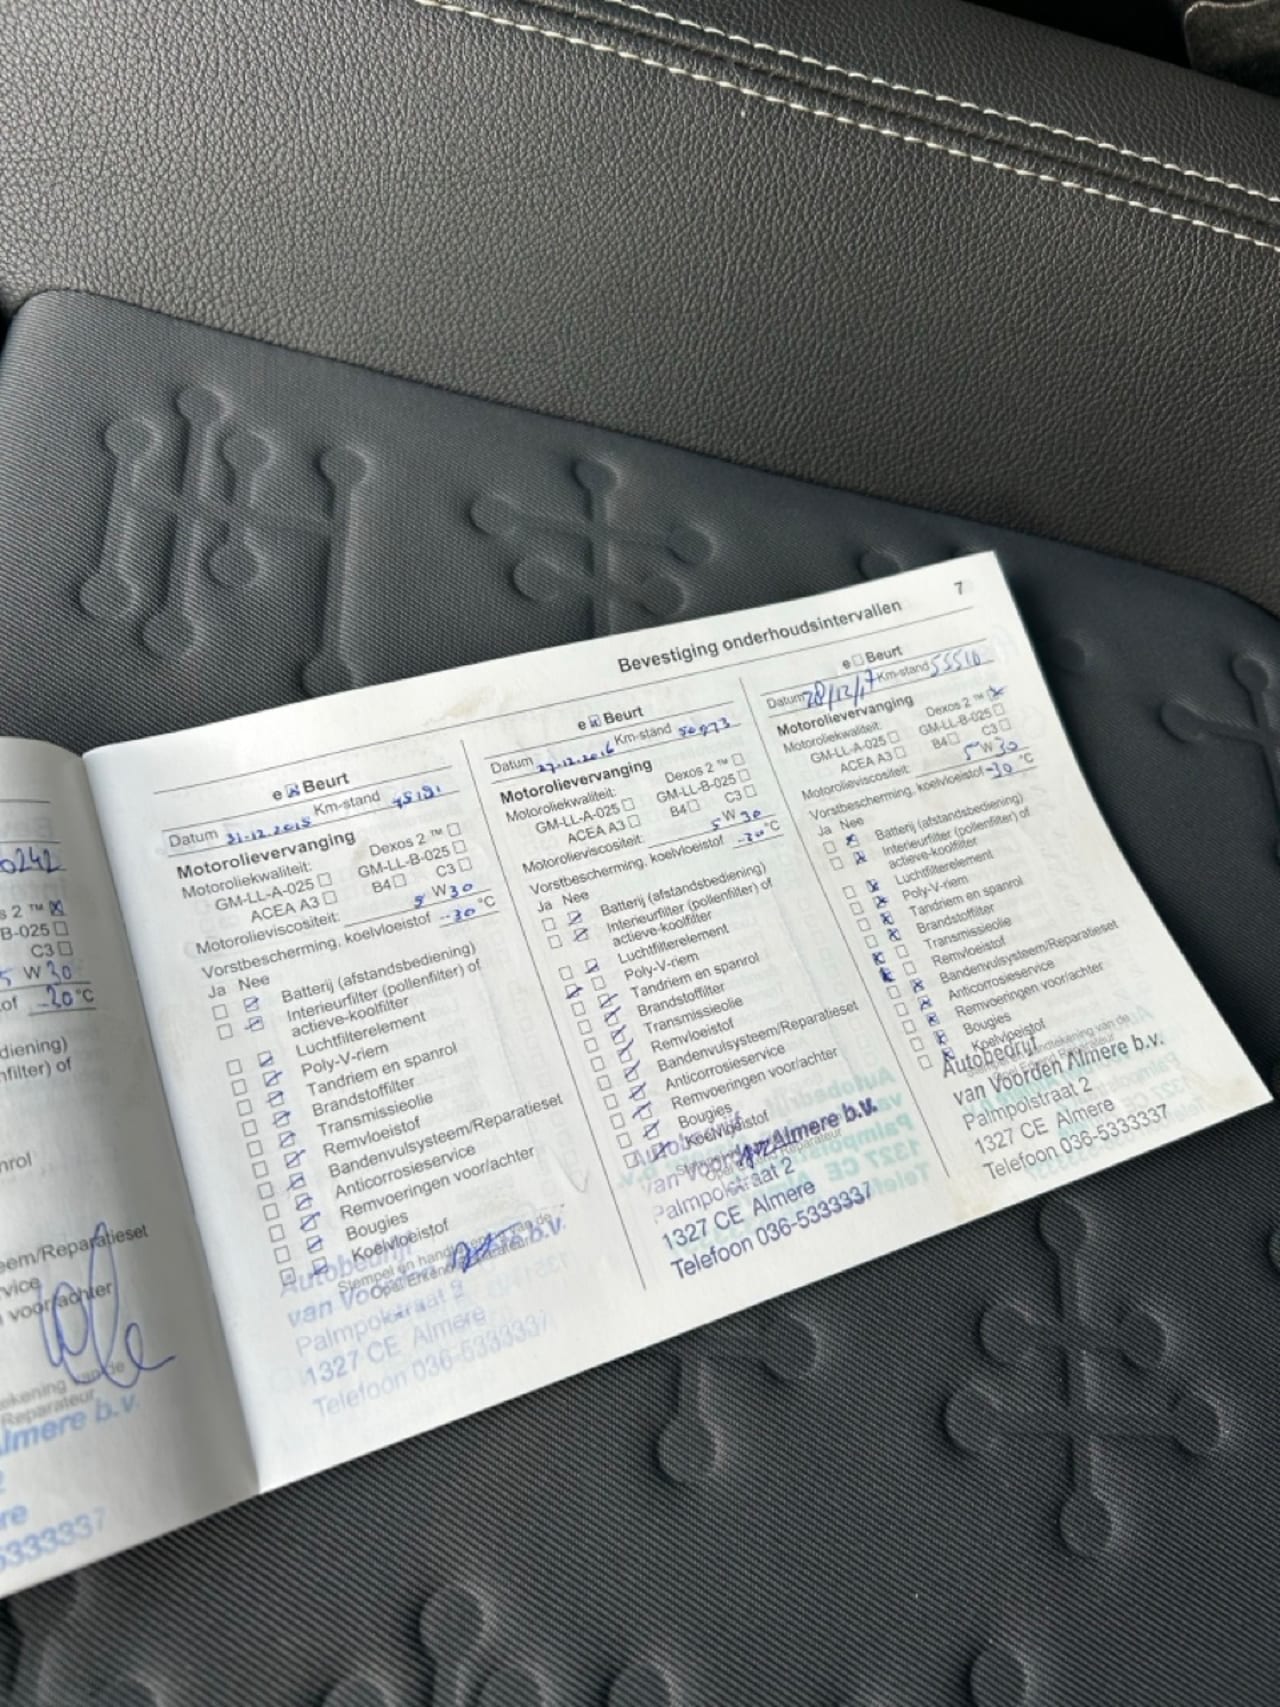 7
Bevestiging onderhoudsintervallen
0242
s 2 ™
B-025
C3
5 W 30
of -20 °C
diening)
nfilter) of
nrol
eem/Reparatieset
vice
voor/achter
ekening van de
Reparateur
lmere b.v.
2
re
5333337
e Beurt
Datum 31-12-2015 Km-stand 45191
Motorolievervanging
Motoroliekwaliteit: Dexos 2 ™
GM-LL-A-025 GM-LL-B-025
ACEA A3 B4 C3
Motorolieviscositeit: 5 W 30
Vorstbescherming, koelvloeistof -30 °C
Ja Nee
Batterij (afstandsbediening)
Interieurfilter (pollenfilter) of
actieve-koolfilter
Luchtfilterelement
Poly-V-riem
Tandriem en spanrol
Brandstoffilter
Transmissieolie
Remvloeistof
Bandenvulsysteem/Reparatieset
Anticorrosieservice
Remvoeringen voor/achter
Bougies
Koelvloeistof
Stempel en handtekening van de
Opel Erkend Reparateur
Autobedrijf
van Voorden Almere b.v.
Palmpolstraat 2
1327 CE Almere
Telefoon 036-5333337
e Beurt
Datum 27-12-2016 Km-stand 50973
Motorolievervanging
Motoroliekwaliteit: Dexos 2 ™
GM-LL-A-025 GM-LL-B-025
ACEA A3 B4 C3
Motorolieviscositeit: 5 W 30
Vorstbescherming, koelvloeistof -20 °C
Ja Nee
Batterij (afstandsbediening)
Interieurfilter (pollenfilter) of
actieve-koolfilter
Luchtfilterelement
Poly-V-riem
Tandriem en spanrol
Brandstoffilter
Transmissieolie
Remvloeistof
Bandenvulsysteem/Reparatieset
Anticorrosieservice
Remvoeringen voor/achter
Bougies
Koelvloeistof
Autobedrijf
van Voorden Almere b.v.
Palmpolstraat 2
1327 CE Almere
Telefoon 036-5333337
e Beurt
Datum 28/12/17 Km-stand 55510
Motorolievervanging
Motoroliekwaliteit: Dexos 2 ™
GM-LL-A-025 GM-LL-B-025
ACEA A3 B4 C3
Motorolieviscositeit: 5 W 30
Vorstbescherming, koelvloeistof -30 °C
Ja Nee
Batterij (afstandsbediening)
Interieurfilter (pollenfilter) of
actieve-koolfilter
Luchtfilterelement
Poly-V-riem
Tandriem en spanrol
Brandstoffilter
Transmissieolie
Remvloeistof
Bandenvulsysteem/Reparatieset
Anticorrosieservice
Remvoeringen voor/achter
Bougies
Koelvloeistof
Stempel en handtekening van de
Opel Erkend Reparateur
Autobedrijf
van Voorden Almere b.v.
Palmpolstraat 2
1327 CE Almere
Telefoon 036-5333337